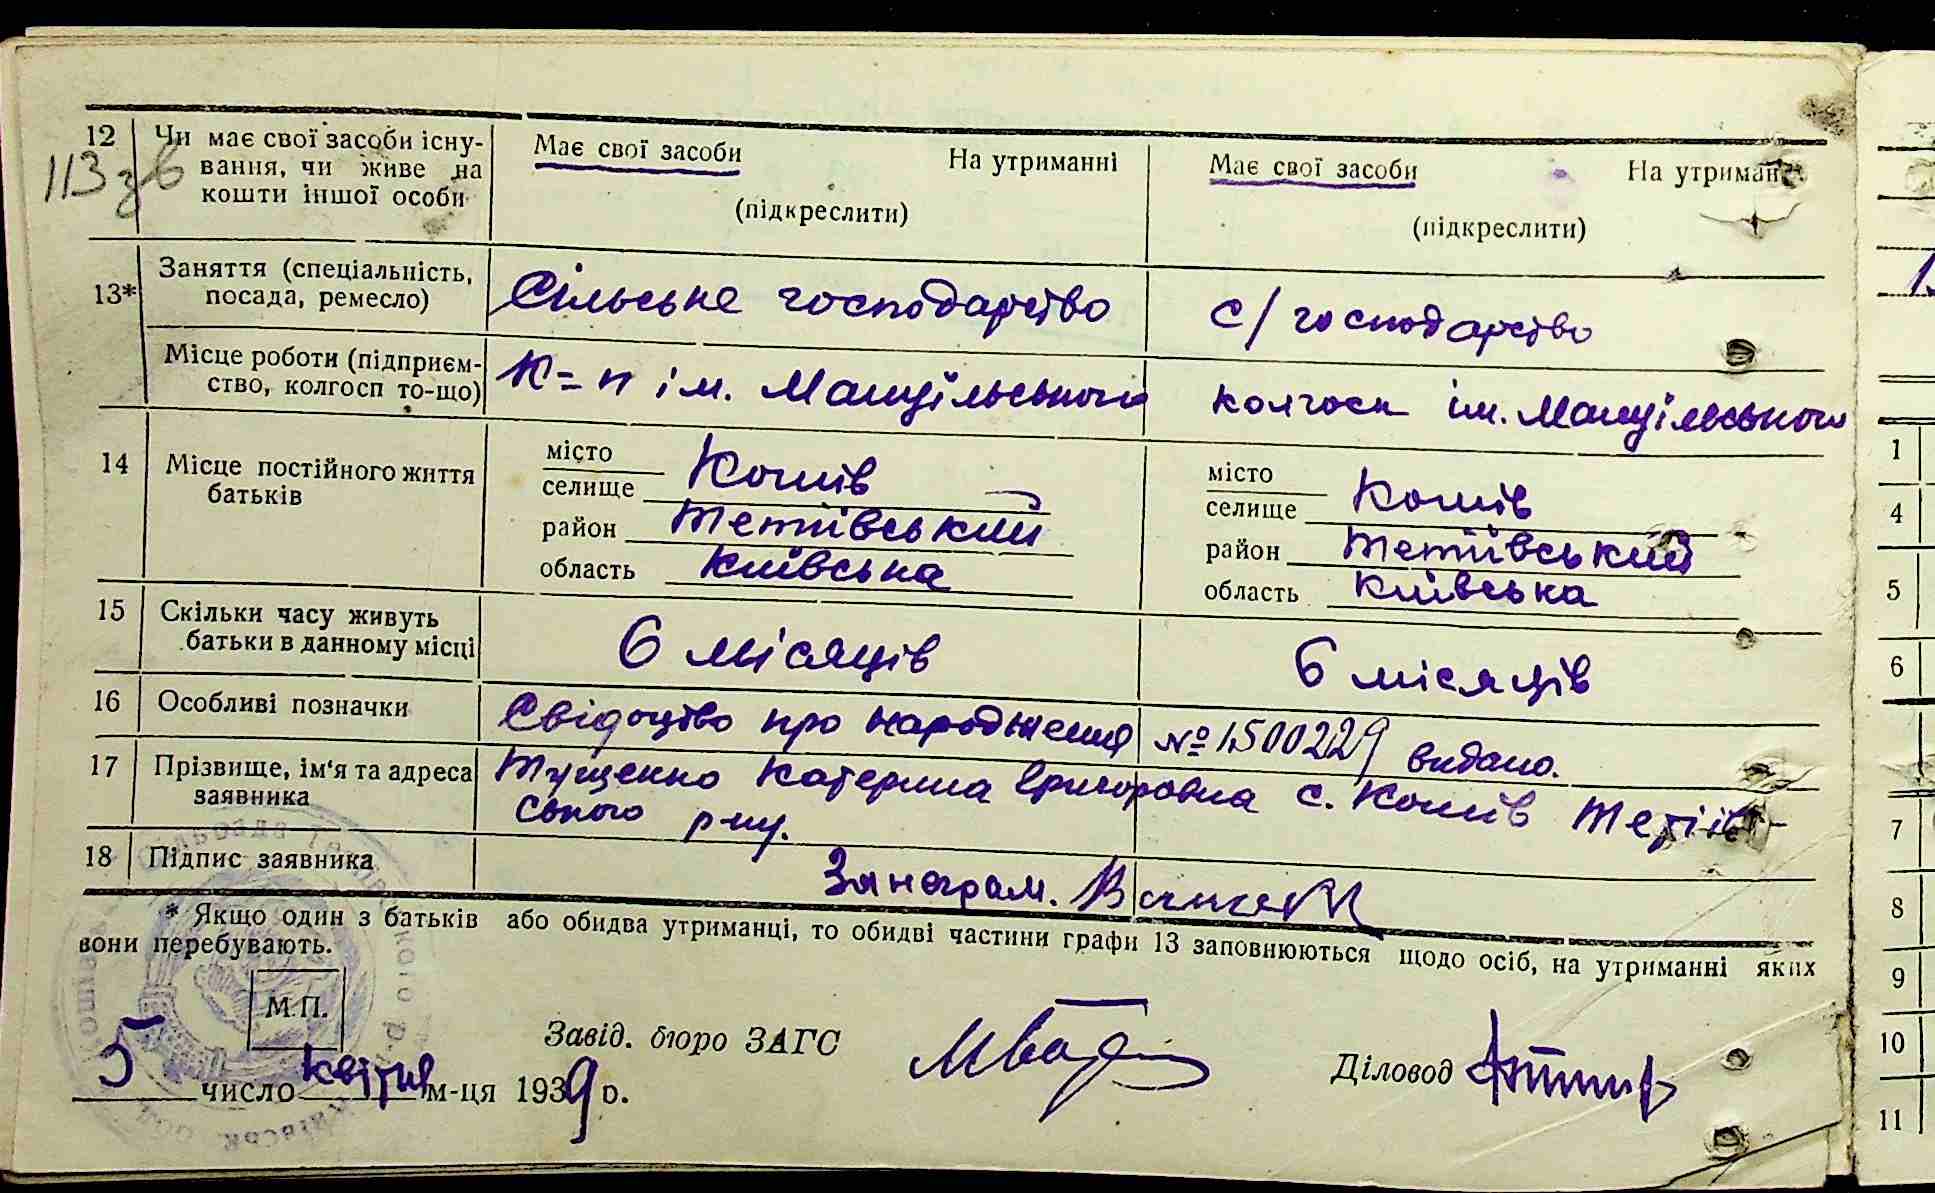 12 Чи має свої засоби існу-
вання, чи живе на
кошти іншої особи
113 зв
Має свої засоби На утриманні
(підкреслити)
Має свої засоби На утриман
(підкреслити)
13* Заняття (спеціальність,
посада, ремесло)
Сільське господарство
с/господарство
Місце роботи (підприєм-
ство, колгосп то-що)
К=п ім. Мануїльського
колгосп ім. Мануїльського
14 Місце постійного життя
батьків
місто
селище Кошів
район Тетіївський
область Київська
місто
селище Кошів
район Тетіївський
область Київська
15 Скільки часу живуть
батьки в данному місці
6 місяців
6 місяців
16 Особливі позначки
Свідоцтво про народження №1500229 видано.
17 Прізвище, ім'я та адреса
заявника
Тущенко Катерина Григоровна с. Кошів Тетіїв
ського р-ну.
18 Підпис заявника
За неграм.
* Якщо один з батьків або обидва утриманці, то обидві частини графи 13 заповнюються щодо осіб, на утриманні яких
вони перебувають.
М.П.
Завід. бюро ЗАГС
Діловод
5 число квітня м-ця 1939 р.
1
4
5
6
7
8
9
10
11